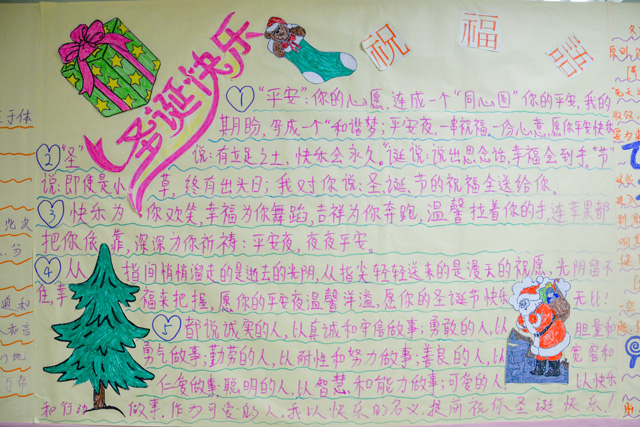 圣诞快乐
祝福語
① “平安”:你的心愿,连成一个“同心圆”你的平安,我的
期盼,写成一个“和谐梦;平安夜,一串祝福,一份心意,愿你平安快乐
② “圣”说:有立足之土,快乐会永久。“诞”说:说出思念话,幸福会到手,“节”
说:即使是小草,终有出头日;我对你说:圣诞节的祝福全送给你。
③ 快乐为你欢笑,幸福为你舞蹈,吉祥为你奔跑,温馨拉着你的手,连苹果都
把你依靠,深深为你祈祷:平安夜,夜夜平安。
④ 从指间悄悄溜走的是逝去的光阴,从指尖轻轻送来的是漫天的祝愿,光阴留不
住,幸福来把握,愿你的平安夜温馨洋溢,愿你的圣诞节快乐无比
⑤ 都说诚实的人,以真诚和守信做事;勇敢的人,以胆量和
勇气做事;勤劳的人,以耐性和努力做事;善良的人,以宽容和
仁爱做事;聪明的人,以智慧和能力做事;可爱的人以快乐
和做事,作为可爱的人,我以快乐的名义,提前祝你圣诞快乐!